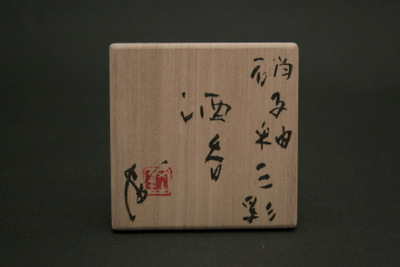 硝子釉三彩
酒呑